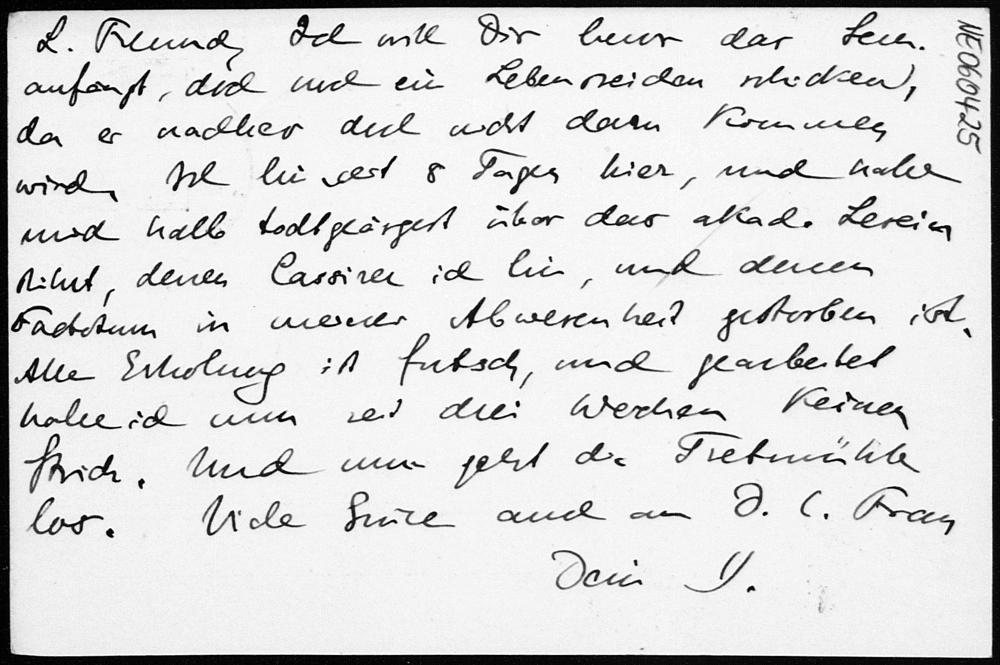 L. Freund, Ich will Dir bevor das Sem.
anfängt, doch noch ein Lebenszeichen schicken,
da er nachher doch nicht dazu kommen
wird. Ich bin erst 8 Tage hier, und habe
mich halb todtgeärgert über das akad. Lesein
stitut, dessen Cassirer ich bin, und dessen
Factotum in meiner Abwesenheit gestorben ist.
Alle Erholung ist futsch, und gearbeitet
habe ich nun seit drei Wochen keinen
Strich. Und nun geht die Tretmühle
los. Viele Grüße auch an D. l. Frau
Dein V.
NE060425